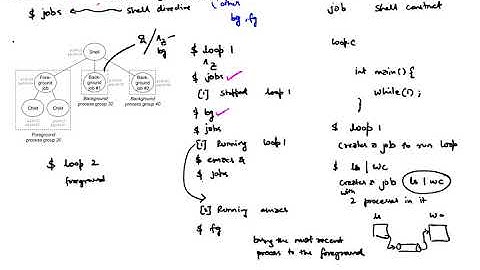 $ jobs ← shell directive
other
bg, fg
&/^Z -
bg
Shell
Fore-
ground
job
Back-
ground
job #1
Back-
ground
job #2
Background
process group 32
Background
process group 40
Child
Child
Foreground
process group 20
$ loop 2
foreground
$ loop 1
^Z
$ jobs
[1] Stopped loop 1
$ bg
$ jobs
[1] Running loop 1
$ emacs &
$ jobs
[2] Running emacs
$ fg
bring the most recent
process to the foreground
job shell construct
loop.c
int main() {
while(1);
}
$ loop 1
creates a job to run loop
$ ls | wc
creates a job ls | wc
with
2 processes in it
ls
wc